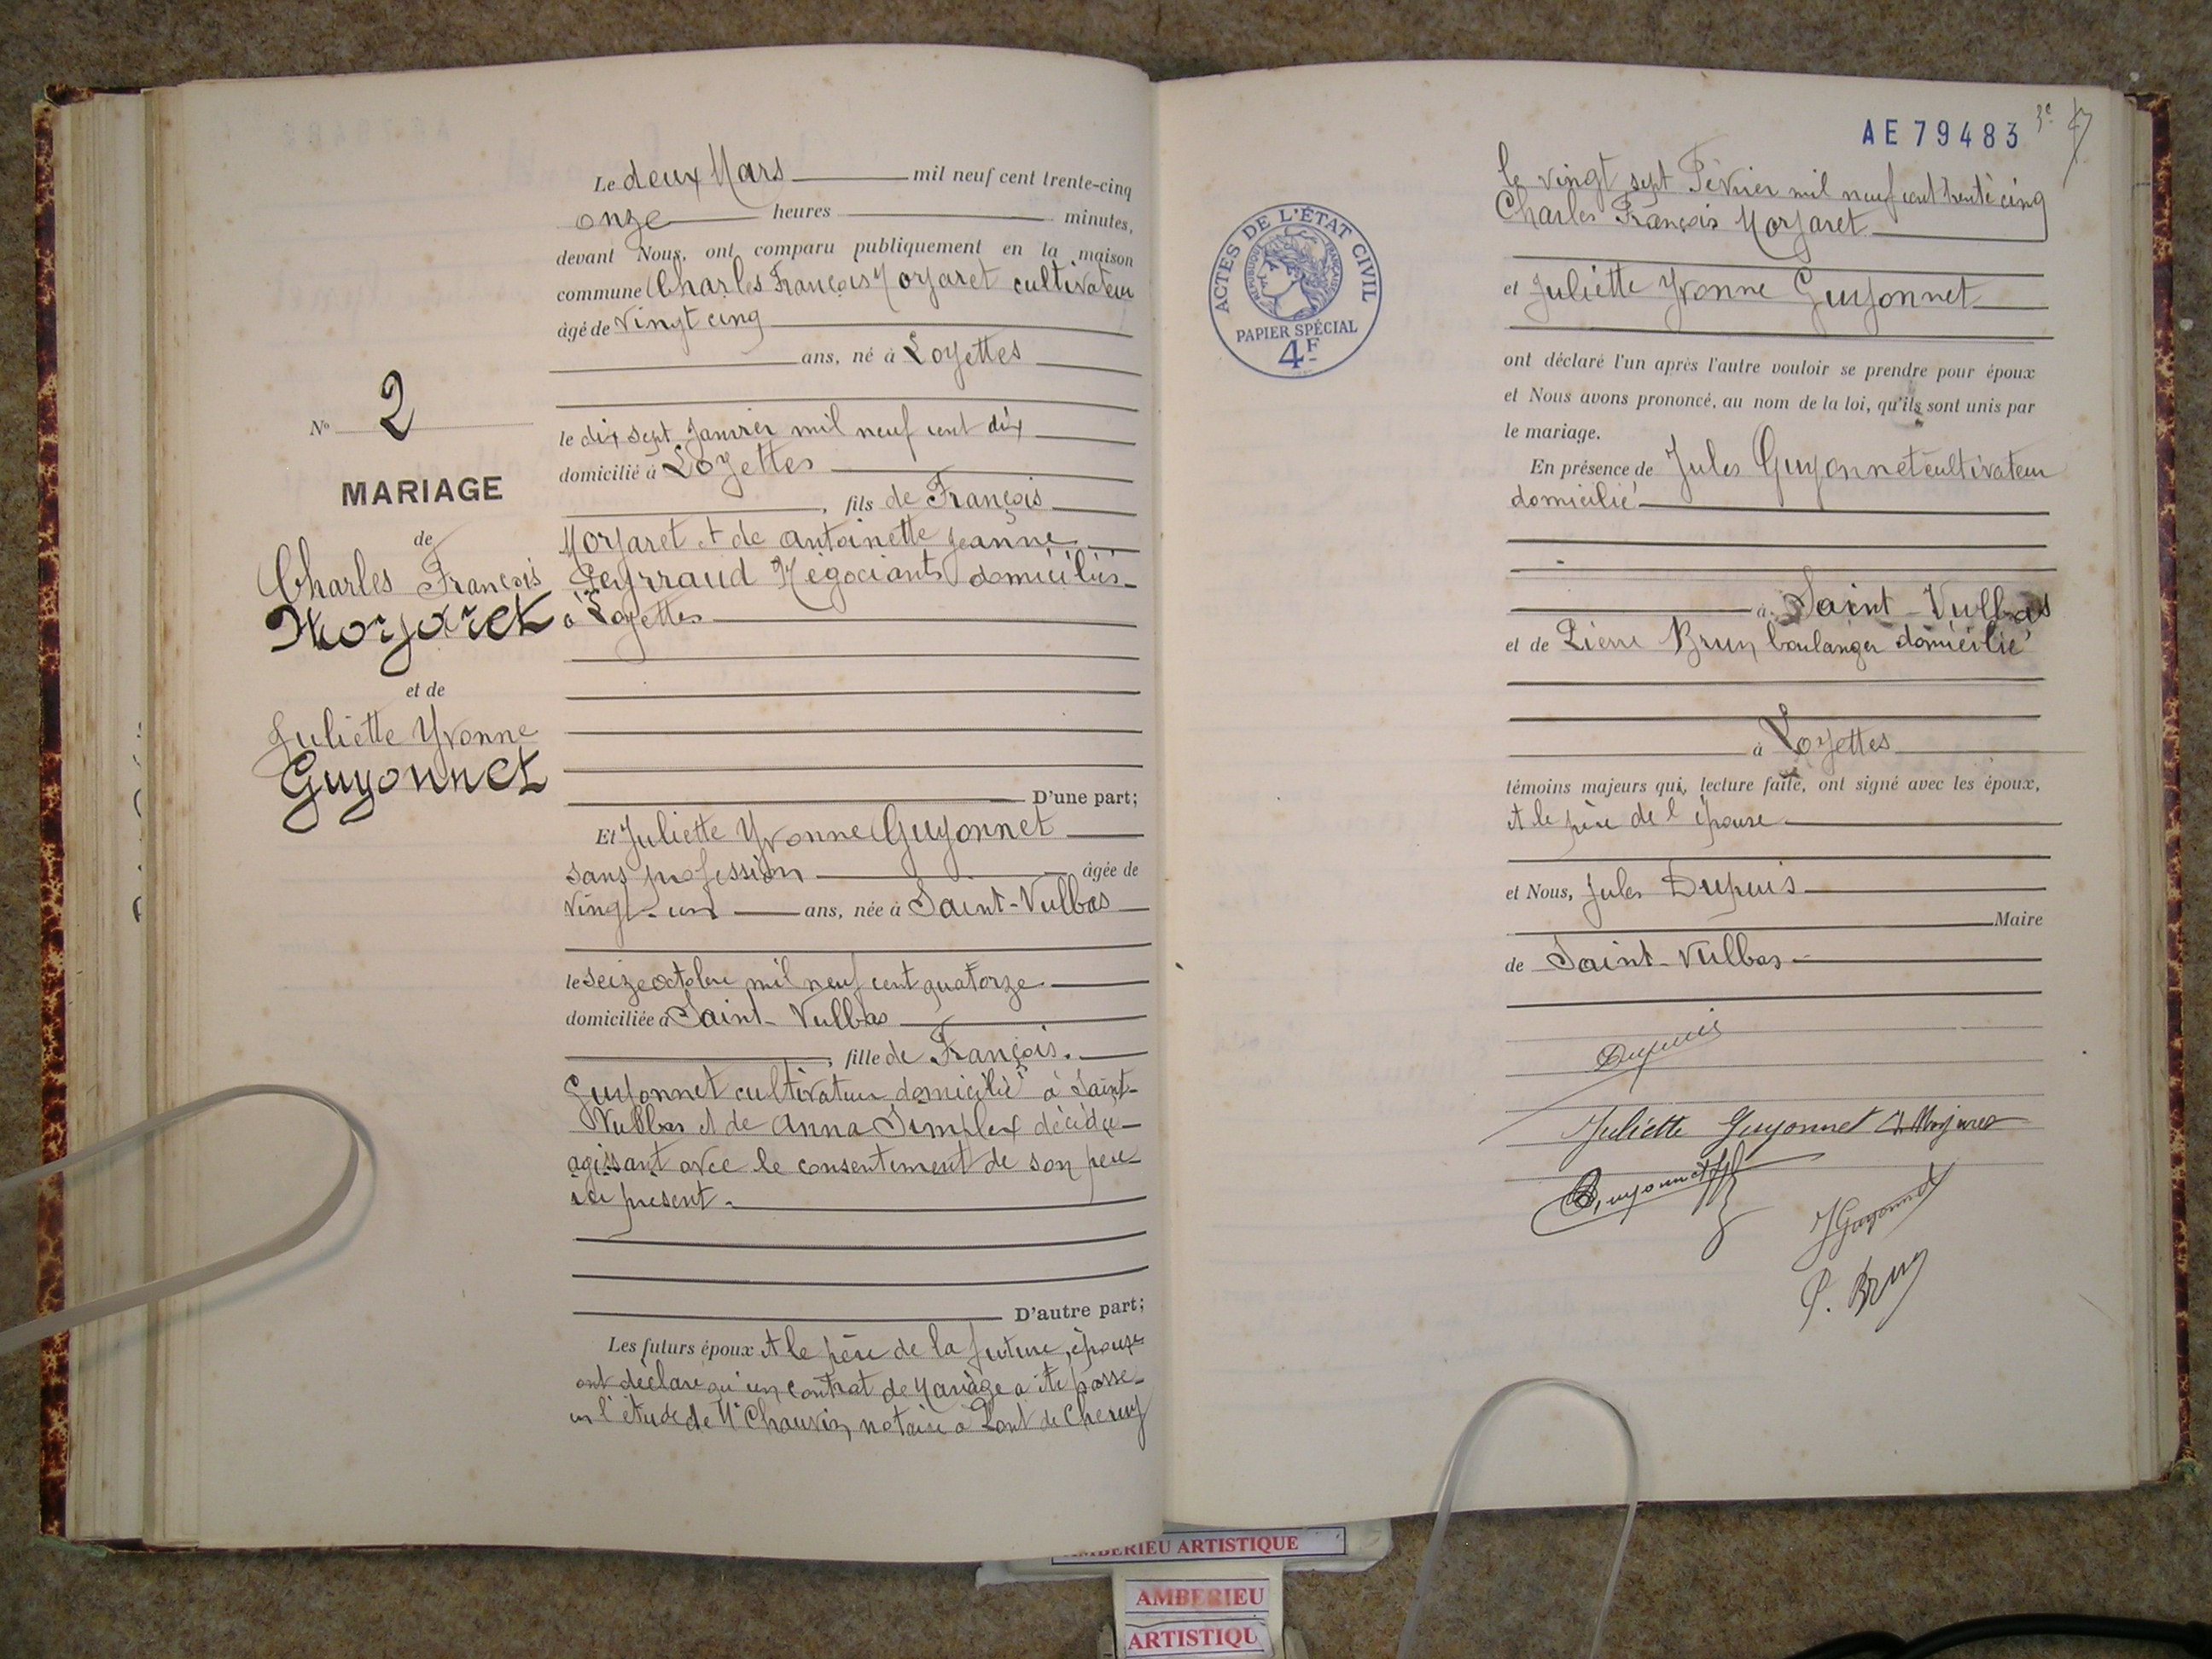 N° 2
MARIAGE
de
Charles François
Morjaret
et de
Juliette Yvonne
Guyonnet
Le deux Mars mil neuf cent trente-cinq
onze heures minutes,
devant Nous, ont comparu publiquement en la maison
commune Charles François Morjaret cultivateur
âgé de vingt cinq
ans, né à Loyettes
le dix sept Janvier mil neuf cent dix
domicilié à Loyettes
, fils de François
Morjaret et de Antoinette Jeanne
Peyrraud Négociants domiciliés
à Loyettes
D'une part;
Et Juliette Yvonne Guyonnet
sans profession âgée de
vingt-un ans, née à Saint-Vulbas
le seize octobre mil neuf cent quatorze
domiciliée à Saint-Vulbas
, fille de François
Guyonnet cultivateur domicilié à Saint-
Vulbas et de Anna Simplex décédée
agissant avec le consentement de son père
ici présent.
D'autre part;
Les futurs époux et le père de la future épouse
ont déclaré qu'un contrat de Mariage a été passé
en l'étude de Me Chauvin notaire à Pont de Cheruy
AE 79483
ACTES DE L'ÉTAT CIVIL
RÉPUBLIQUE FRANÇAISE
PAPIER SPÉCIAL
4F
le vingt sept Février mil neuf cent trente cinq
Charles François Morjaret
et Juliette Yvonne Guyonnet
ont déclaré l'un après l'autre vouloir se prendre pour époux
et Nous avons prononcé, au nom de la loi, qu'ils sont unis par
le mariage.
En présence de Jules Guyonnet cultivateur
domicilié
à Saint-Vulbas
et de Pierre Brun boulanger domicilié
à Loyettes
témoins majeurs qui, lecture faite, ont signé avec les époux,
et le père de l'épouse
et Nous, Jules Dupuis
Maire
de Saint-Vulbas
Dupuis
Juliette Guyonnet Ch Morjaret
Guyonnet
J Guyonnet
P. Brun
AMBERIEU ARTISTIQUE
AMBERIEU
ARTISTIQU